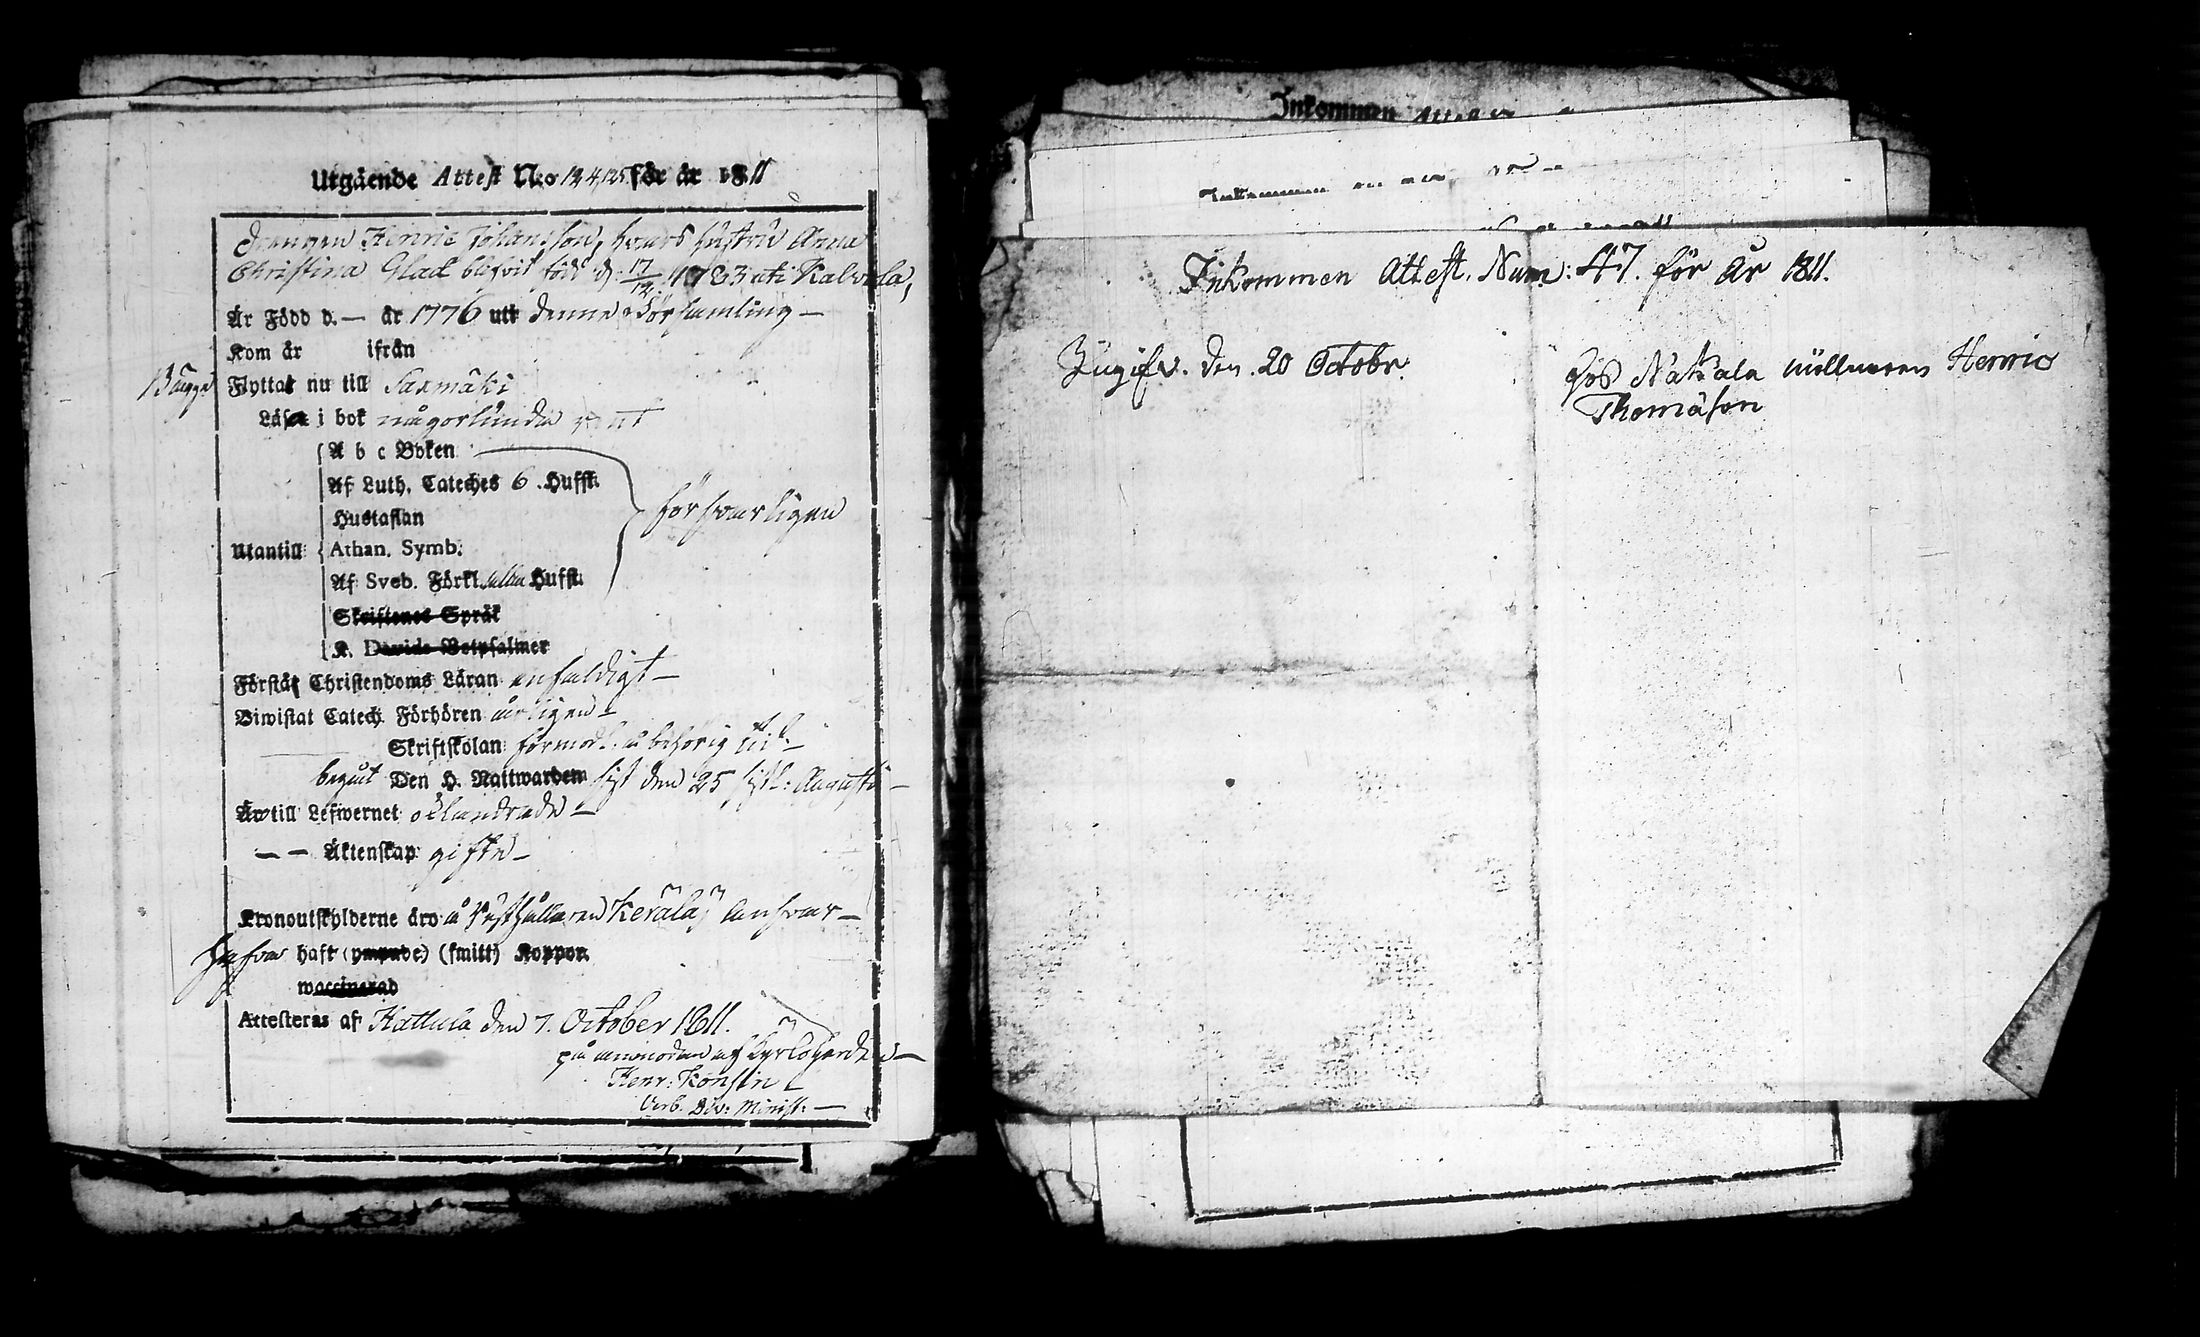 Utgående Attest N:o 124,125 för år 1811
Drengen Henric Johansson, hvars hustru Anna
Christina Glad blefvit född d. 17/12 1783 uti Kalvola,
Är Född d. — år 1776 utt denne Församling —
Kom år ifrån
Bägge Flyttat nu till Saxmäki
Läsa i bok någorlunda rent
A b c Boken
Af Luth. Cateches 6. Hufst.
Hustaflan
försvarligen
Utantill Athan. Symb.
Af Sveb. Förkl. alla Hufst.
Skriftenes Språk
K. Davids Botpsalmer
Förstår Christendoms Läran enfaldigt —
Biwistat Catech. Förhören årligen —
Skriftskolan å behörig tid —
begått Den H. Nattwarden sist den 25 sistl: Augusti —
Äro till Lefwernet oklandrade —
— — Äktenskap gifte —
Kronoutskylderne äro å Rusthållaren Kerälä ansvar —
haft (ympade) (smitt) Koppor.
waccinerad
Attesteras af Hattula den 7. October 1811.
på anmodan af Kyrkoherden —
Henr: Konsin
Verb. Div: Minist: —
Inkommen Attest
Inkommen
Inkommen Attest. Num: 47. för år 1811.
Ingifv. den 20 Octobr.
Hos Nakala möllnaren Henric
Thomason